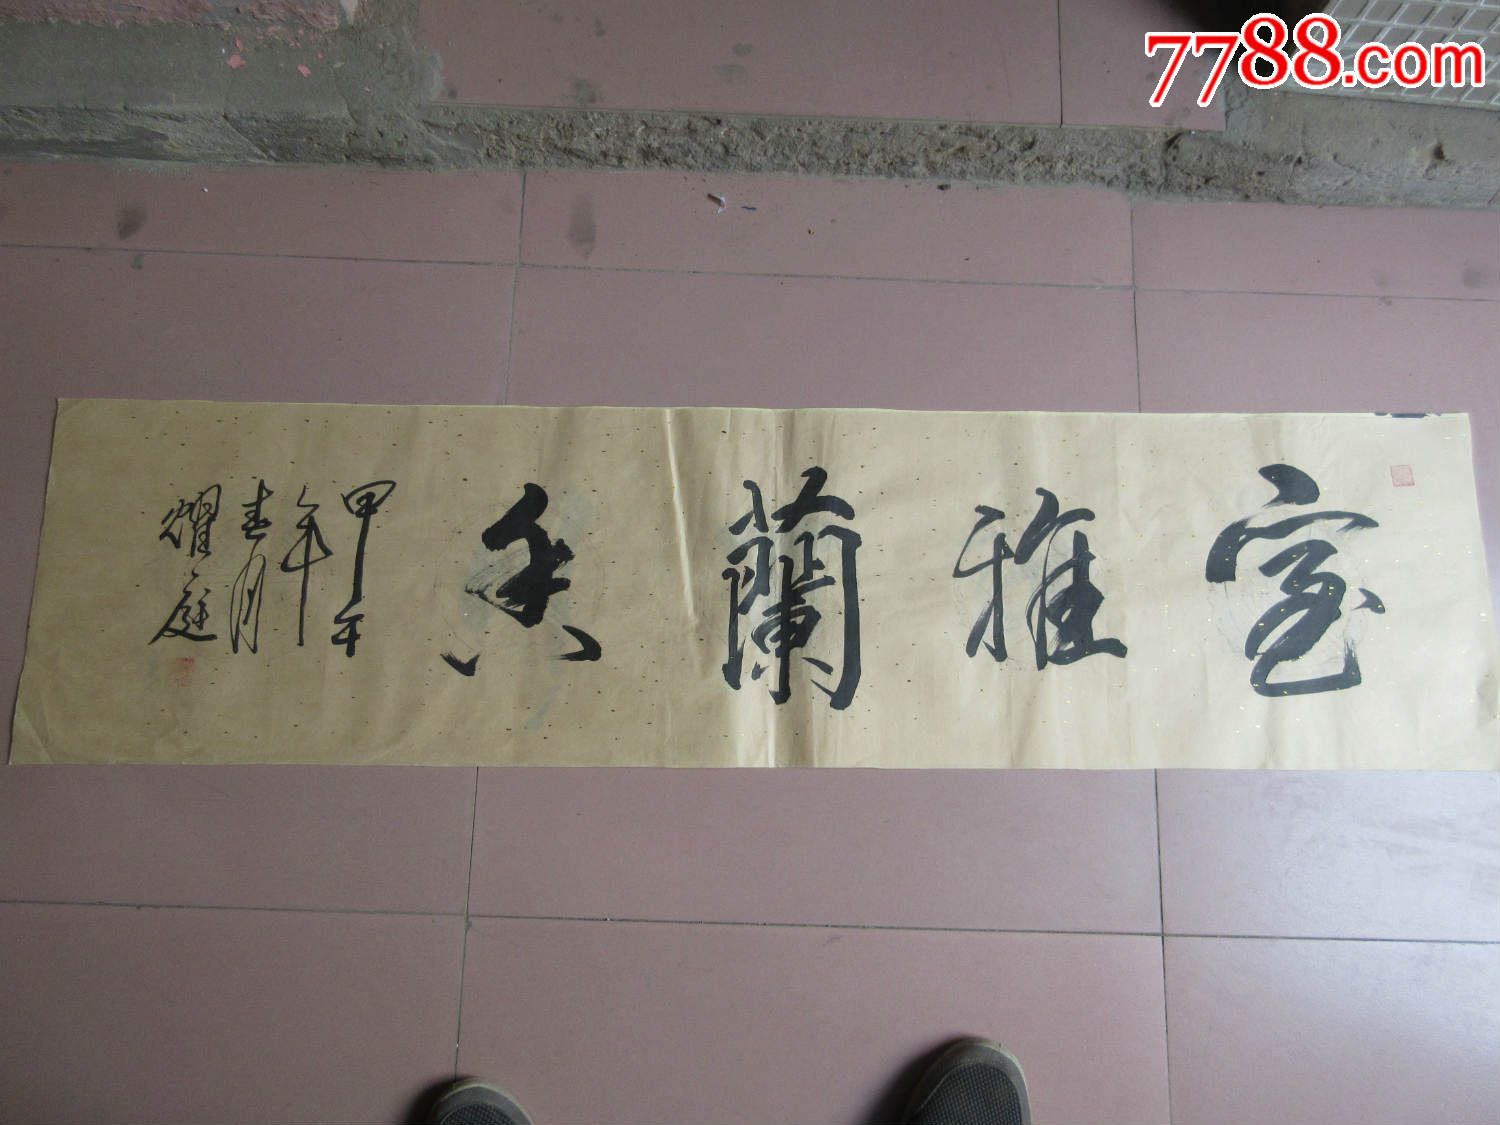 7788.com
室雅蘭香
甲午
年
春月
耀庭